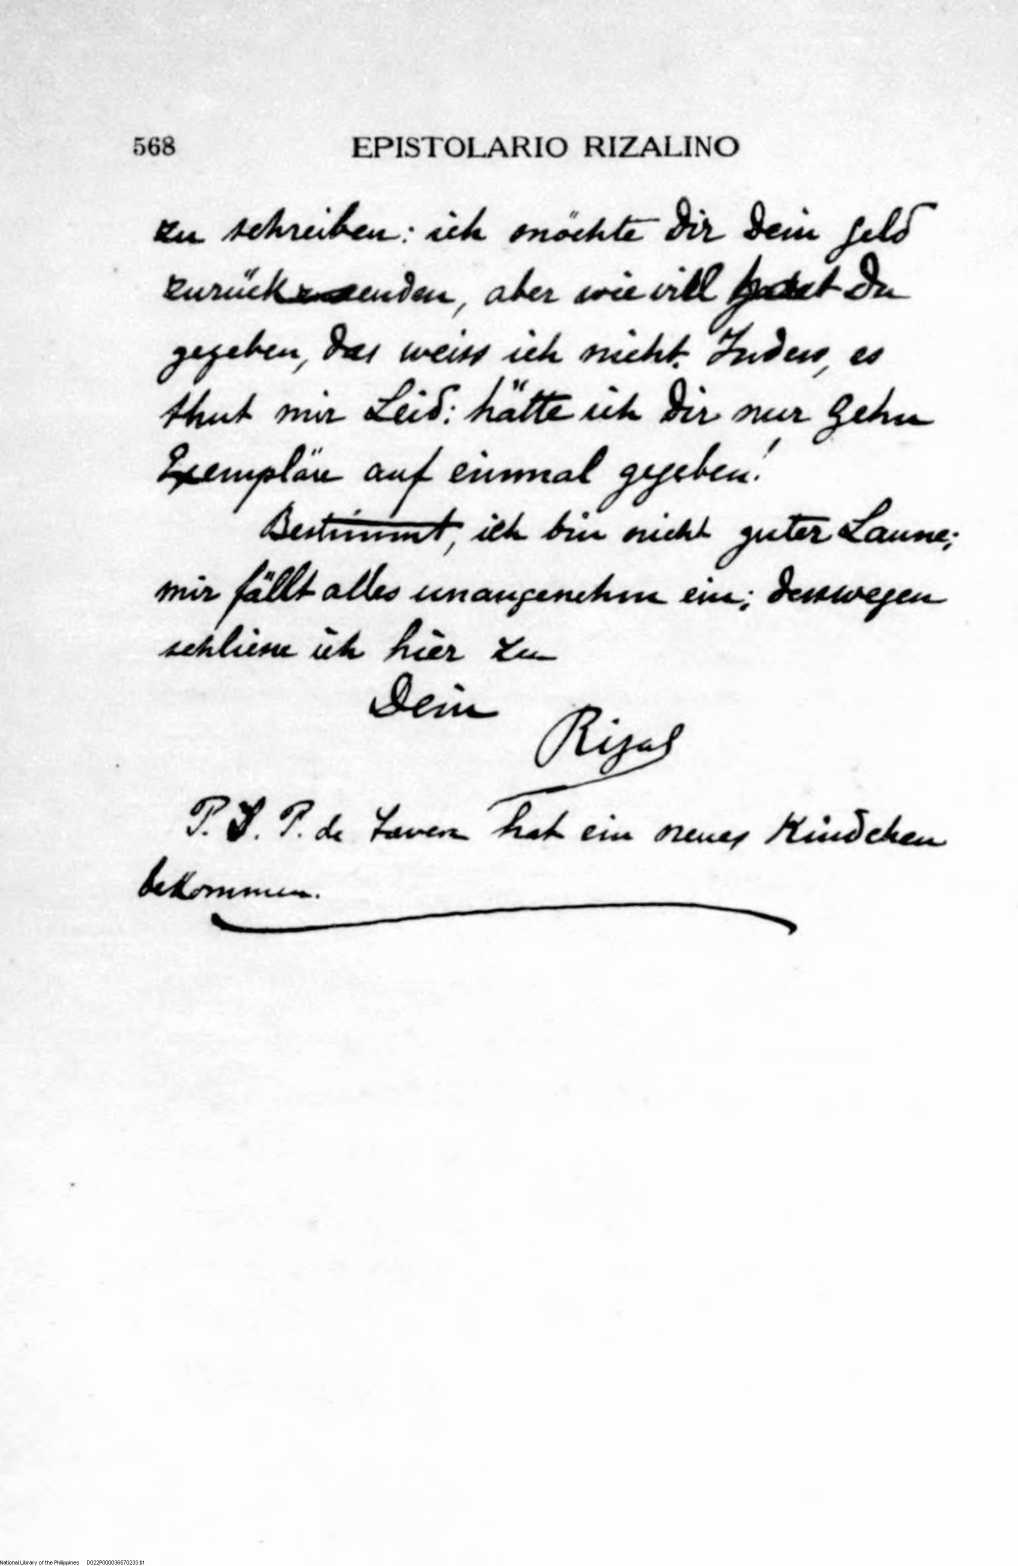 568 EPISTOLARIO RIZALINO
zu schreiben: ich möchte Dir Dein Geld
zurücksenden, aber wie viell hast Du
gegeben, das weiss ich nicht. Indess, es
thut mir Leid: hätte ich Dir nur Zehn
Exempläre auf einmal gegeben!
Bestimmt, ich bin nicht guter Laune;
mir fällt alles unangenehm ein; desswegen
schliesse ich hier zu
Dein
Rizal
P. S. P. de Tavera hat ein neues Kindchen
bekommen.
National Library of the Philippines